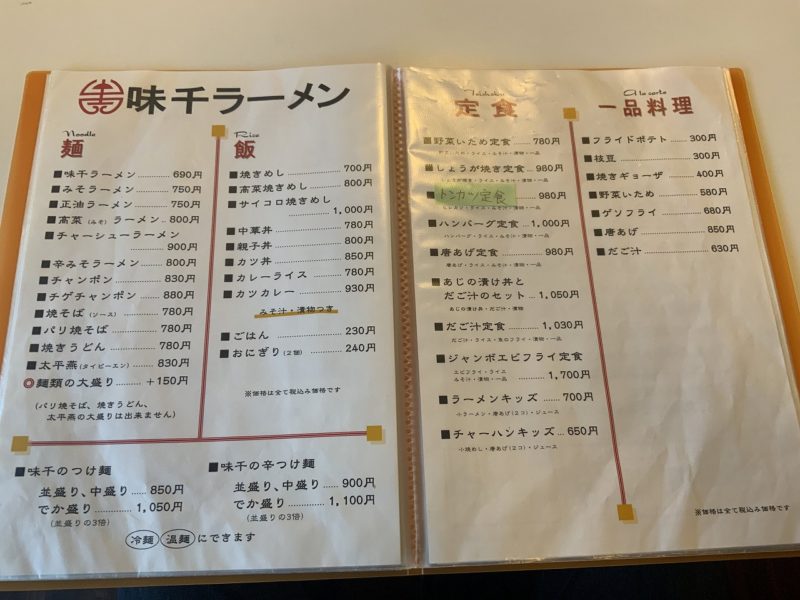 味千ラーメン
Noodle
麺
■味千ラーメン……690円
■みそラーメン……750円
■正油ラーメン……750円
■高菜（みそ）ラーメン…800円
■チャーシューラーメン
……900円
■辛みそラーメン……800円
■チャンポン……830円
■チゲチャンポン……880円
■焼そば（ソース）……780円
■パリ焼そば……780円
■焼きうどん……780円
■太平燕（タイピーエン）……830円
◎麺類の大盛り……＋150円
（パリ焼そば、焼きうどん、
太平燕の大盛りは出来ません）
Rice
飯
■焼きめし……700円
■高菜焼きめし……800円
■サイコロ焼きめし
……1,000円
■中華丼……780円
■親子丼……800円
■カツ丼……850円
■カレーライス……780円
■カツカレー……930円
みそ汁・漬物つき
■ごはん……230円
■おにぎり（2個）……240円
※価格は全て税込み価格です
■味千のつけ麺
並盛り、中盛り……850円
でか盛り……1,050円
（並盛りの3倍）
■味千の辛つけ麺
並盛り、中盛り……900円
でか盛り……1,100円
（並盛りの3倍）
冷麺 温麺 にできます
Teishoku
定食
■野菜いため定食……780円
野菜いため・ライス・みそ汁・漬物・一品
■しょうが焼き定食…980円
しょうが焼き・ライス・みそ汁・漬物・一品
トンカツ定食 980円
ライス・みそ汁・漬物・一品
■ハンバーグ定食…1,000円
ハンバーグ・ライス・みそ汁・漬物・一品
■唐あげ定食……980円
唐あげ・ライス・みそ汁・漬物・一品
■あじの漬け丼と
だご汁のセット…1,050円
あじの漬け丼・だご汁・漬物
■だご汁定食……1,030円
だご汁・ライス・魚のフライ・漬物・一品
■ジャンボエビフライ定食
エビフライ・ライス
みそ汁・漬物・一品……1,700円
■ラーメンキッズ……700円
小ラーメン・唐あげ（2コ）・ジュース
■チャーハンキッズ…650円
小焼めし・唐あげ（2コ）・ジュース
A la carte
一品料理
■フライドポテト……300円
■枝豆……300円
■焼きギョーザ……400円
■野菜いため……580円
■ゲソフライ……680円
■唐あげ……850円
■だご汁……630円
※価格は全て税込み価格です